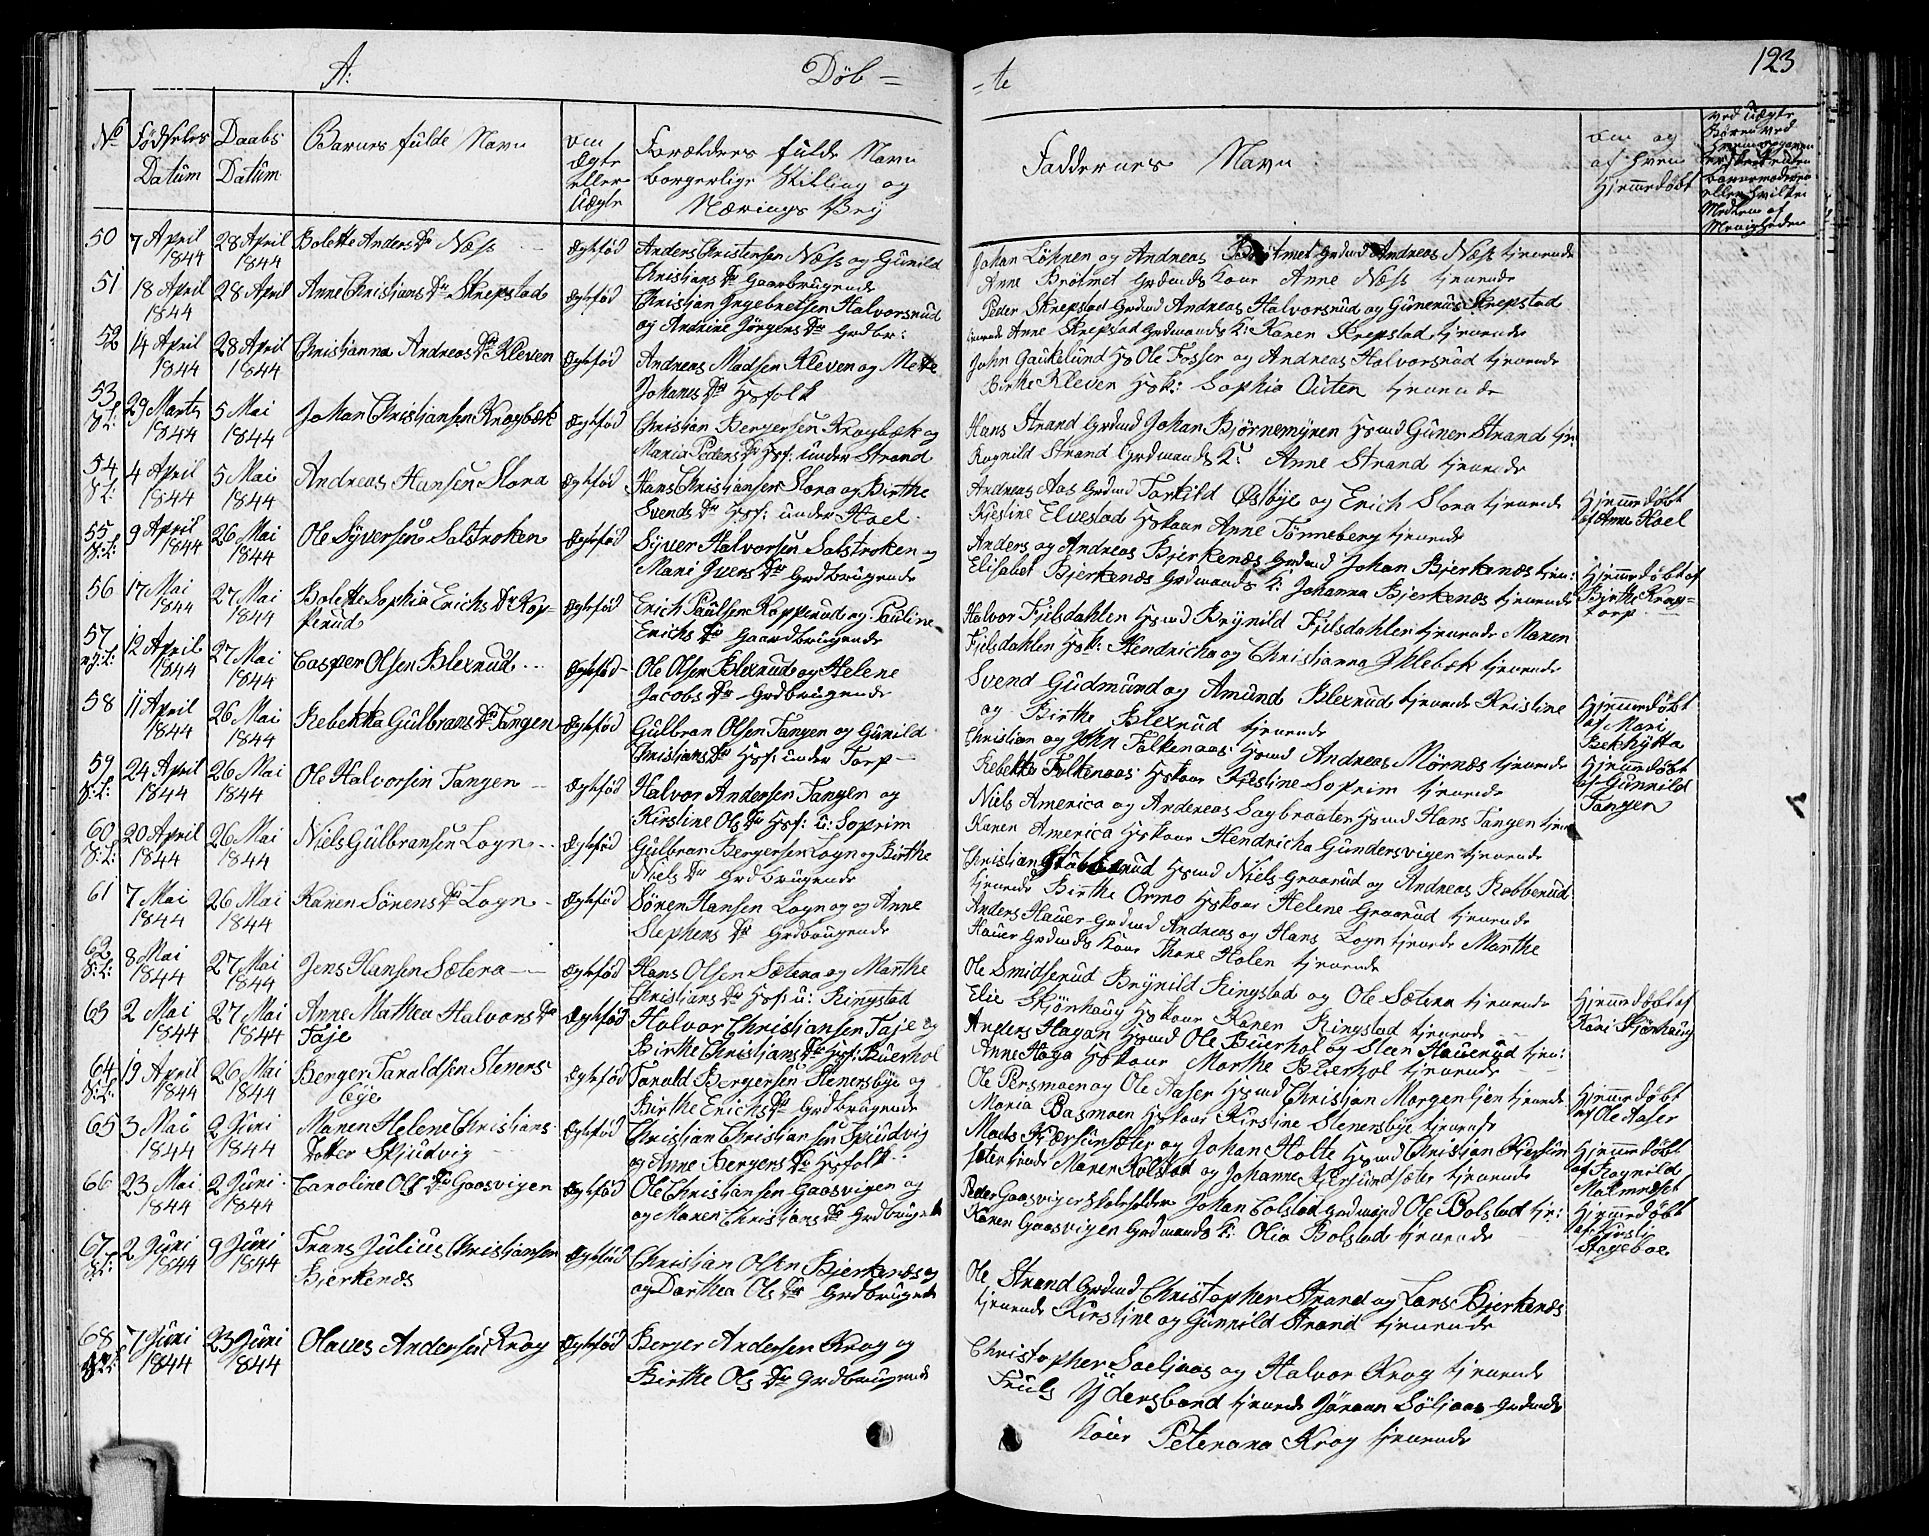 A: Döb=
=te 123
No Födsels Datum
Daabs Datum
Barnes fulde Navn
om Ægte eller Uægte
Forældres fulde Navn
borgerlige Stilling og
Nærings Vej
Faddernes Navn
om og af hvem Hjemmedøbt
50 7 April 1844 28 April 1844 Bolette Anders Dr Næss Ægtefød Anders Christensen Næss og Gunild
Christians Dr Gaardbrugende
Johan Løknen og Andreas Brøtmet Grdmd Andreas Næss tjenende
Anne Brötmet Grdmands Kone Anne Næss tjenende
51 18 April 1844 28 April Anne Christians Dr Skrepstad Ægtefød Christian Ingebretsen Halvorsrud
og Andrine Jörgens Dr Grdbr:
Peder Skrepstad Grdmd Andreas Halvorsrud og Gunerius Skrepstad
tjenende Anne Skrepstad Grdmands K: Karen Skrepstad tjenende
52 14 April 1844 28 April 1844 Christianna Andreas Dr Kleven Ægtefød Andreas Madsen Kleven og Mette
Johans Dr Hsfolk
John Gaukelund Hs Ole Fosser og Andreas Halvorsrud tjenende
Birthe Kleven Hsk: Sophia Outen tjenende
53 29 Marts 1844 5 Mai 1844 Johan Christiansen Kragbæk Ægtefød Christian Bergersen Kragbæk og
Maria Peders Dr Hsf: under Strand
Hans Strand Grdmd Johan Bjørnemyren Hsmd Guner Strand tj:
Ragnild Strand Grdmands K: Anne Strand tjenende
54 4 April 1844 5 Mai 1844 Andreas Hansen Slora Ægtefød Hans Christiansen Slora og Birthe
Svends Dr Hsf: under Hoel
Andreas Aas Grdmd Torkild Østbye og Erich Slora tjenende
Kjestine Elvestad Hskone Anne Tønneberg tjenende
Hjemmedøbt
af Anne Hoel
55 9 April 1844 26 Mai 1844 Ole Syversen Salstroken Ægtefød Syver Halvorsen Salstroken og
Mari Ivers Dr Grdbrugende
Anders og Andreas Bjerkenæs Grdmd Johan Bjerkenæs tjen:
Elisabet Bjerkenæs Grdmands K: Johanna Bjerkenæs tjenende
Hjemmedøbt af
Birthe Krog=
torp
56 17 Mai 1844 27 Mai 1844 Bolette Sophia Erichs Dr Kop-
perud Ægtefød Erich Paulsen Kopperud og Pauline
Erichs Dr Gaardbrugende
Halvor Fjelsdahlen Hsmd Brynild Fjelsdahlen tjenende Maren
Fjelsdahlen Hsk: Hendricha og Christianna Iklebæk tjenende
57 12 April 1844 27 Mai 1844 Casper Olsen Blexrud Ægtefød Ole Olsen Blexrud og Helene
Jacobs Dr Grdbrugende
Svend Gudmund og Amund Blexrud tjenende Kristine
og Birthe Blexrud tjenende
58 11 April 1844 26 Mai 1844 Rebekka Gulbrans Dr Tangen Ægtefød Gulbran Olsen Tangen og Gunild
Christians Dr Hsf: under Torp
Christian og John Falkenaas Hsmd Andreas Mørnæs tjenende
Rebekka Falkenaas Hskone Kjestine Soprim tjenende
Hjemmedøbt
af Mari
Bekhytta
59 24 April 1844 26 Mai 1844 Ole Halvorsen Tangen Ægtefød Halvor Andersen Tangen og
Kirstine Ols Dr Hsf: u: Soprim
Niels America og Andreas Sagbraaten Hsmd Hans Tangen tjen
Karen America Hskone Hendricha Gundersvigen tjenende
Hjemmedøbt
af Gunnild
Tangen
60 20 April 1844 26 Mai 1844 Niels Gulbransen Logn Ægtefød Gulbran Bergersen Logn og Birthe
Niels Dr Grdbrugende
Christian Hsmd Niels Graarud og Andreas Robberud
tjenende Birthe Ormo Hskone Helene Graarud tjenende
61 7 Mai 1844 26 Mai 1844 Karen Sörens Dr Logn Ægtefød Sören Hansen Logn og og Anne
Stephens Dr Grdbrugende
Anders Hauer Grdmd Andreas og Hans Logn tjenende Marthe
Hauer Grdmds Kone Thone Holen tjenende
62 8 Mai 1844 27 Mai 1844 Jens Hansen Sætera Ægtefød Hans Olsen Sætera og Marthe
Christians Dr Hsf: u: Ringstad
Ole Smidserud Brynild Ringstad og Ole Sætera tjenende
Elie Skjönhaug Hskone Karen Ringstad tjenende
63 2 Mai 1844 27 Mai 1844 Anne Mathea Halvors Dr
Taje Ægtefød Halvor Christiansen Taje og
Birthe Christians Dr Hsf: Buerhol
Anders Hagan Hsmd Ole Buerhol og Steen Hauerud tjen:
Anne Haga Hskone Marthe Buerhol tjenende
Hjemmedøbt af
Kari Skjönhaug
64 19 April 1844 26 Mai 1844 Berger Taraldsen Steners
bye Ægtefød Tarald Bergersen Stenersbye og
Birthe Erichs Dr Grdbrugende
Ole Persmoen og Ole Aaser Hsmd Christian Morgentjen tjenende
Maria Basmoen Hskone Kirstine Stenersbye tjenende
Hjemmedøbt
af Ole Aaser
65 3 Mai 1844 2 Juni 1844 Maren Helene Christians
Dotter Skjudvig Ægtefød Christian Christiansen Skjudvig
og Anne Bergers Dr Hsfolk
Mads Kjærsundsæter og Johan Holte Hsmd Christian Kjersun
sæter tjende Maren Kolstad og Johanne Kjersundsæter tjenende
Hjemmedøbt
af Ragnild
Malmredset
66 23 Mai 1844 2 Juni 1844 Caroline Ols Dr Gaasvigen Ægtefød Ole Christiansen Gaasvigen og
og Maren Christians Dr Grdbrugende
Peder Gaasvigen Skoleholder Johan Bolstad Gadmand Ole Bolstad tj:
Karen Gaasvigen Grdmands K: Olia Bolstad tjenende
Hjemmedøbt
af Kjersti
Stageboe
67 2 Juni 1844 9 Juni 1844 Frans Julius Christiansen
Bjerkenæs Ægtefød Christian Olsen Bjerkenæs og
og Dorthea Ols Dr Grdbrugende
Ole Strand Grdmd Christopher Strand og Lars Bjerkenæs
tjenende Kirstine og Gunnild Strand tjenende
68 7 Juni 1844 23 Juni 1844 Olaves Andersen Krog Ægtefød Berger Andersen Krog og
Birthe Ols Dr Grdbrugende
Christopher Soeljaas og Halvor Krog tjenende
Truls Ydersbond tjenende Jöraan Söljaas Grdmds
Kone Peternana Krog tjenende